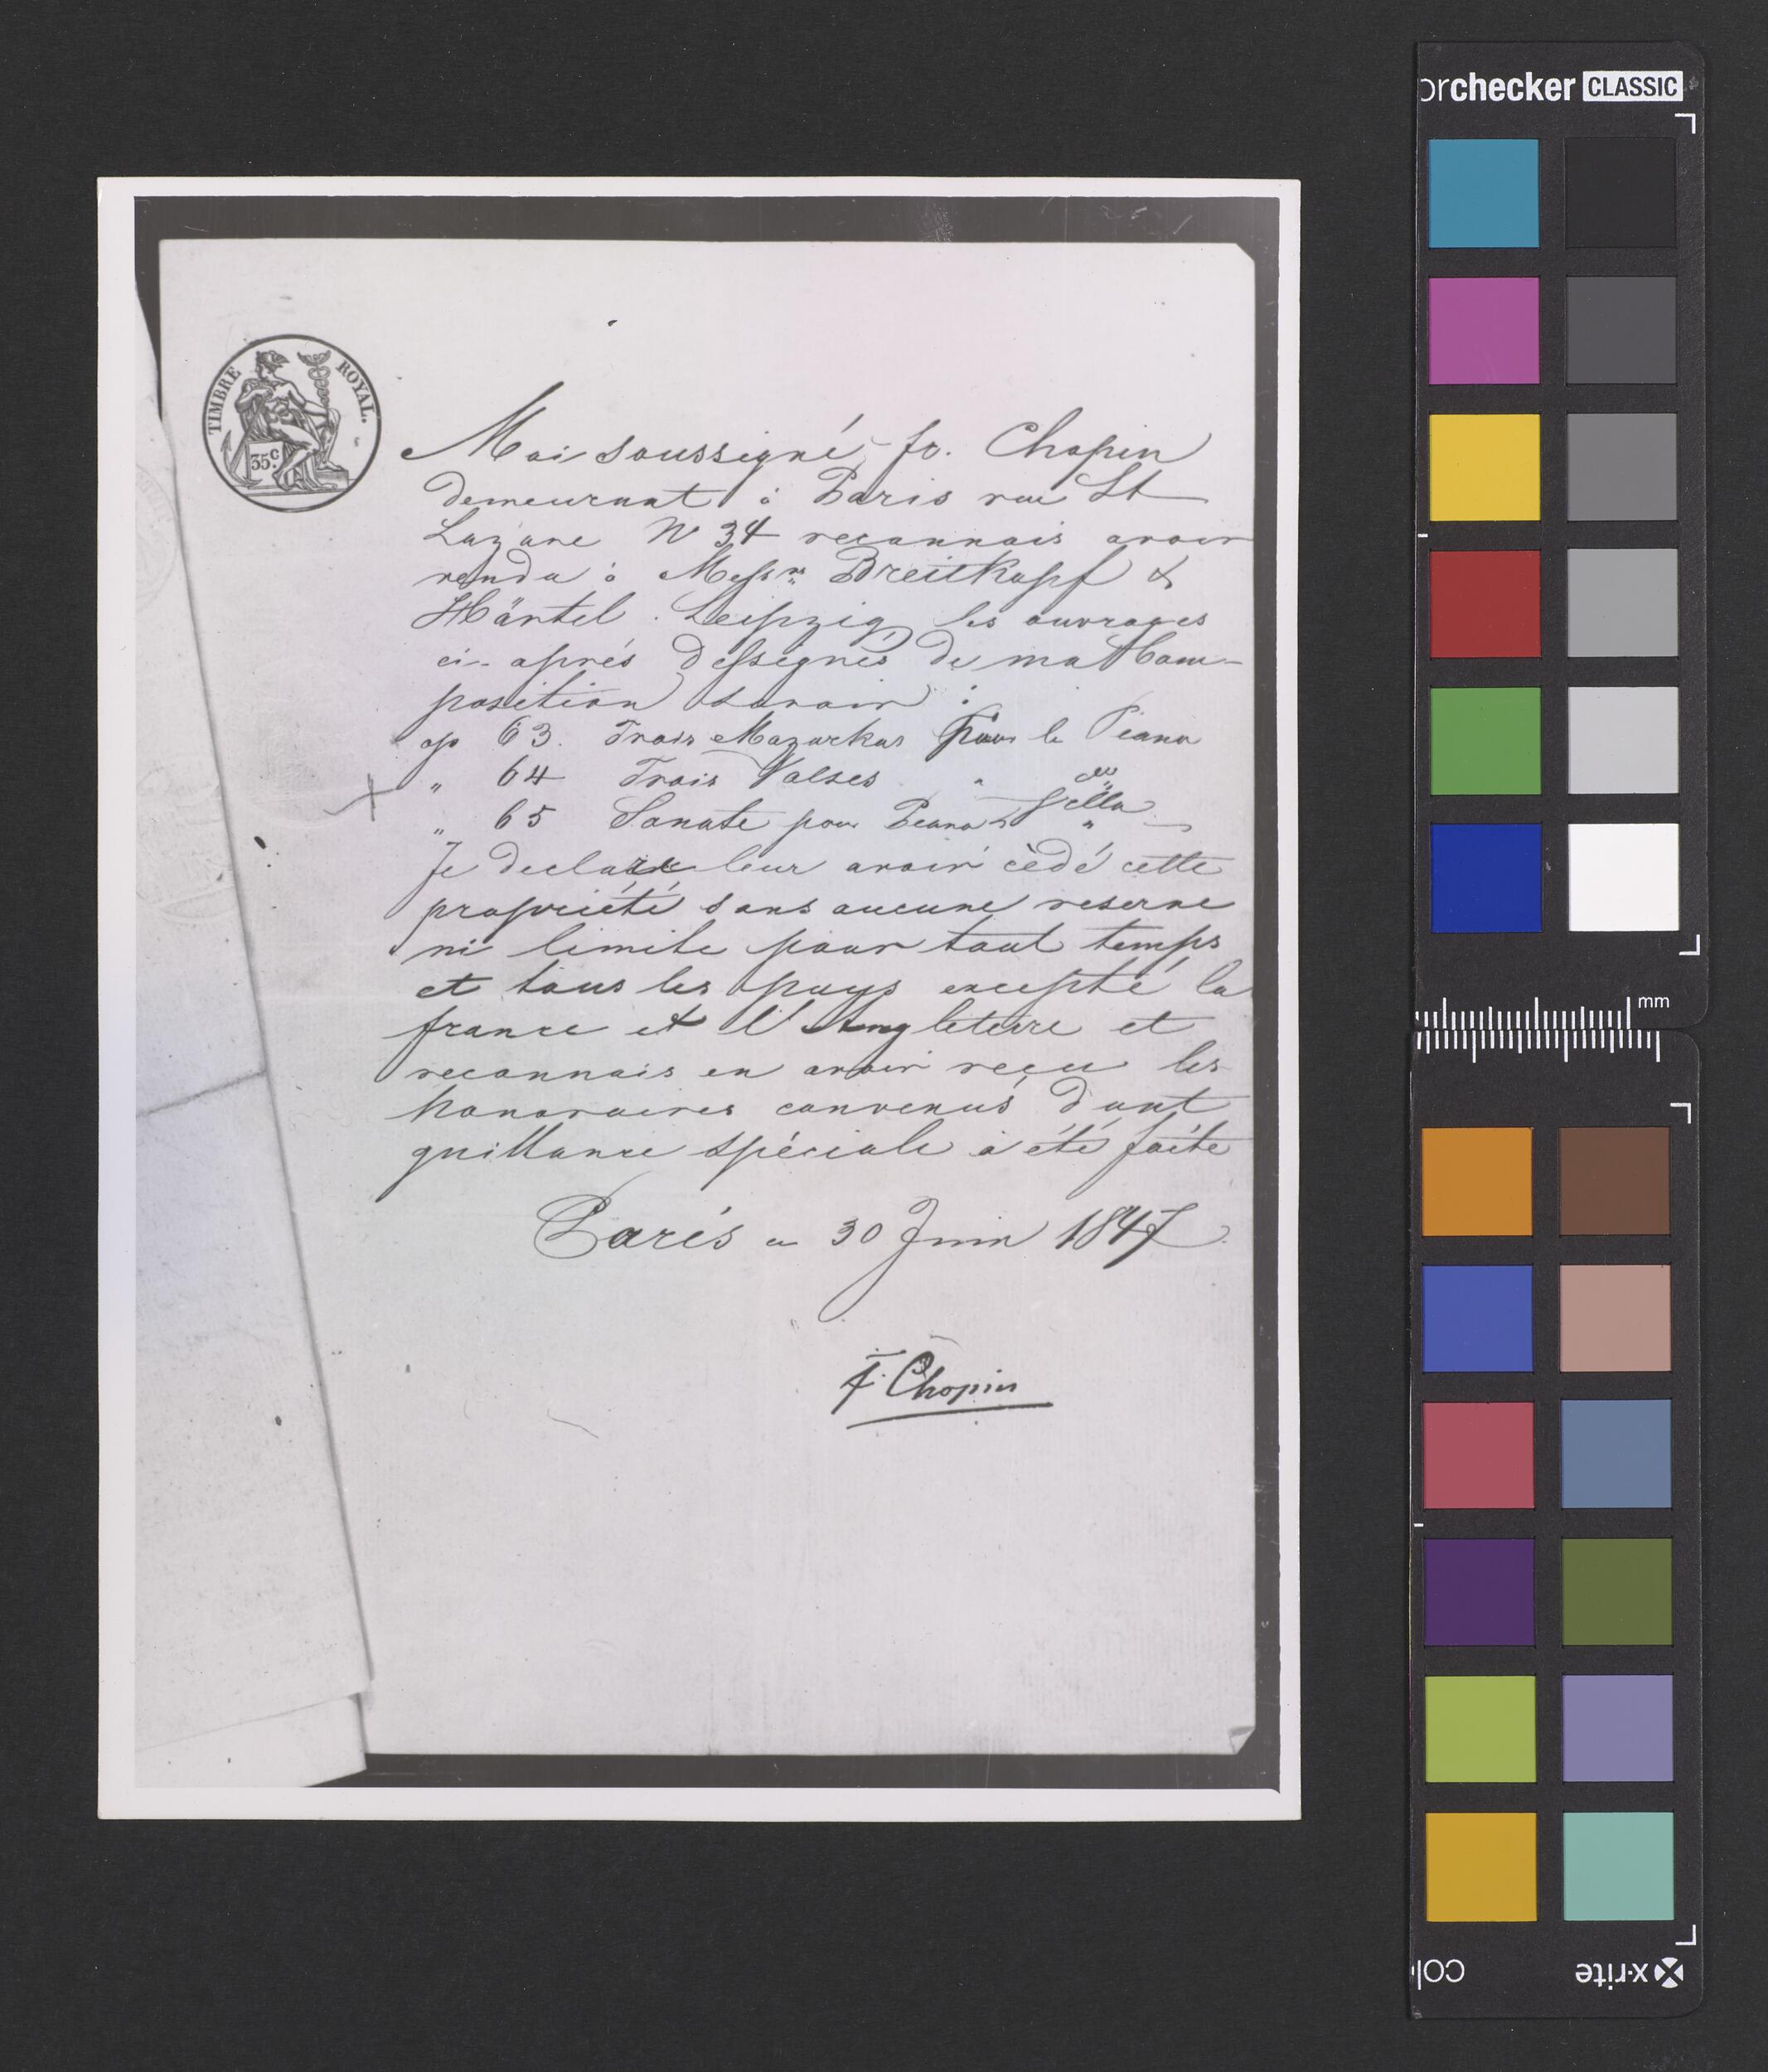 TIMBRE ROYAL.
35c
Moi soussigné fr. Chopin
demeurant à Paris rue St
Lazare N 34 reconnais avoir
vendu à Messrs Breitkopf &
Härtel Leipzig les ouvrages
ci-après dessignés de ma Com-
position savoir :
op 63. Trois Mazurkas pour le Piano
" 64 Trois Valses " "
" 65 Sonate pour Piano & Vcelle "
Je declare leur avoir cèdé cette
propriété sans aucune reserve
ni limite pour tout temps
et tous les pays excepté la
france et l'Angleterre et
reconnais en avoir reçu les
honoraires convenus dont
quittance spéciale a été faite
Paris ce 30 Juin 1847.
F. Chopin
orchecker CLASSIC
mm
x-rite
col